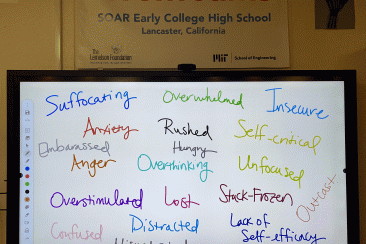 SOAR Early College High School
Lancaster, California
The Lemelson Foundation
MIT School of Engineering
Suffocating Overwhelmed Insecure
Anxiety Rushed Self-critical
Embarassed Hungry
Anger Overthinking Unfocused
Overstimulated Lost Stuck-Frozen Outcast
Confused Distracted Lack of
Self-efficacy